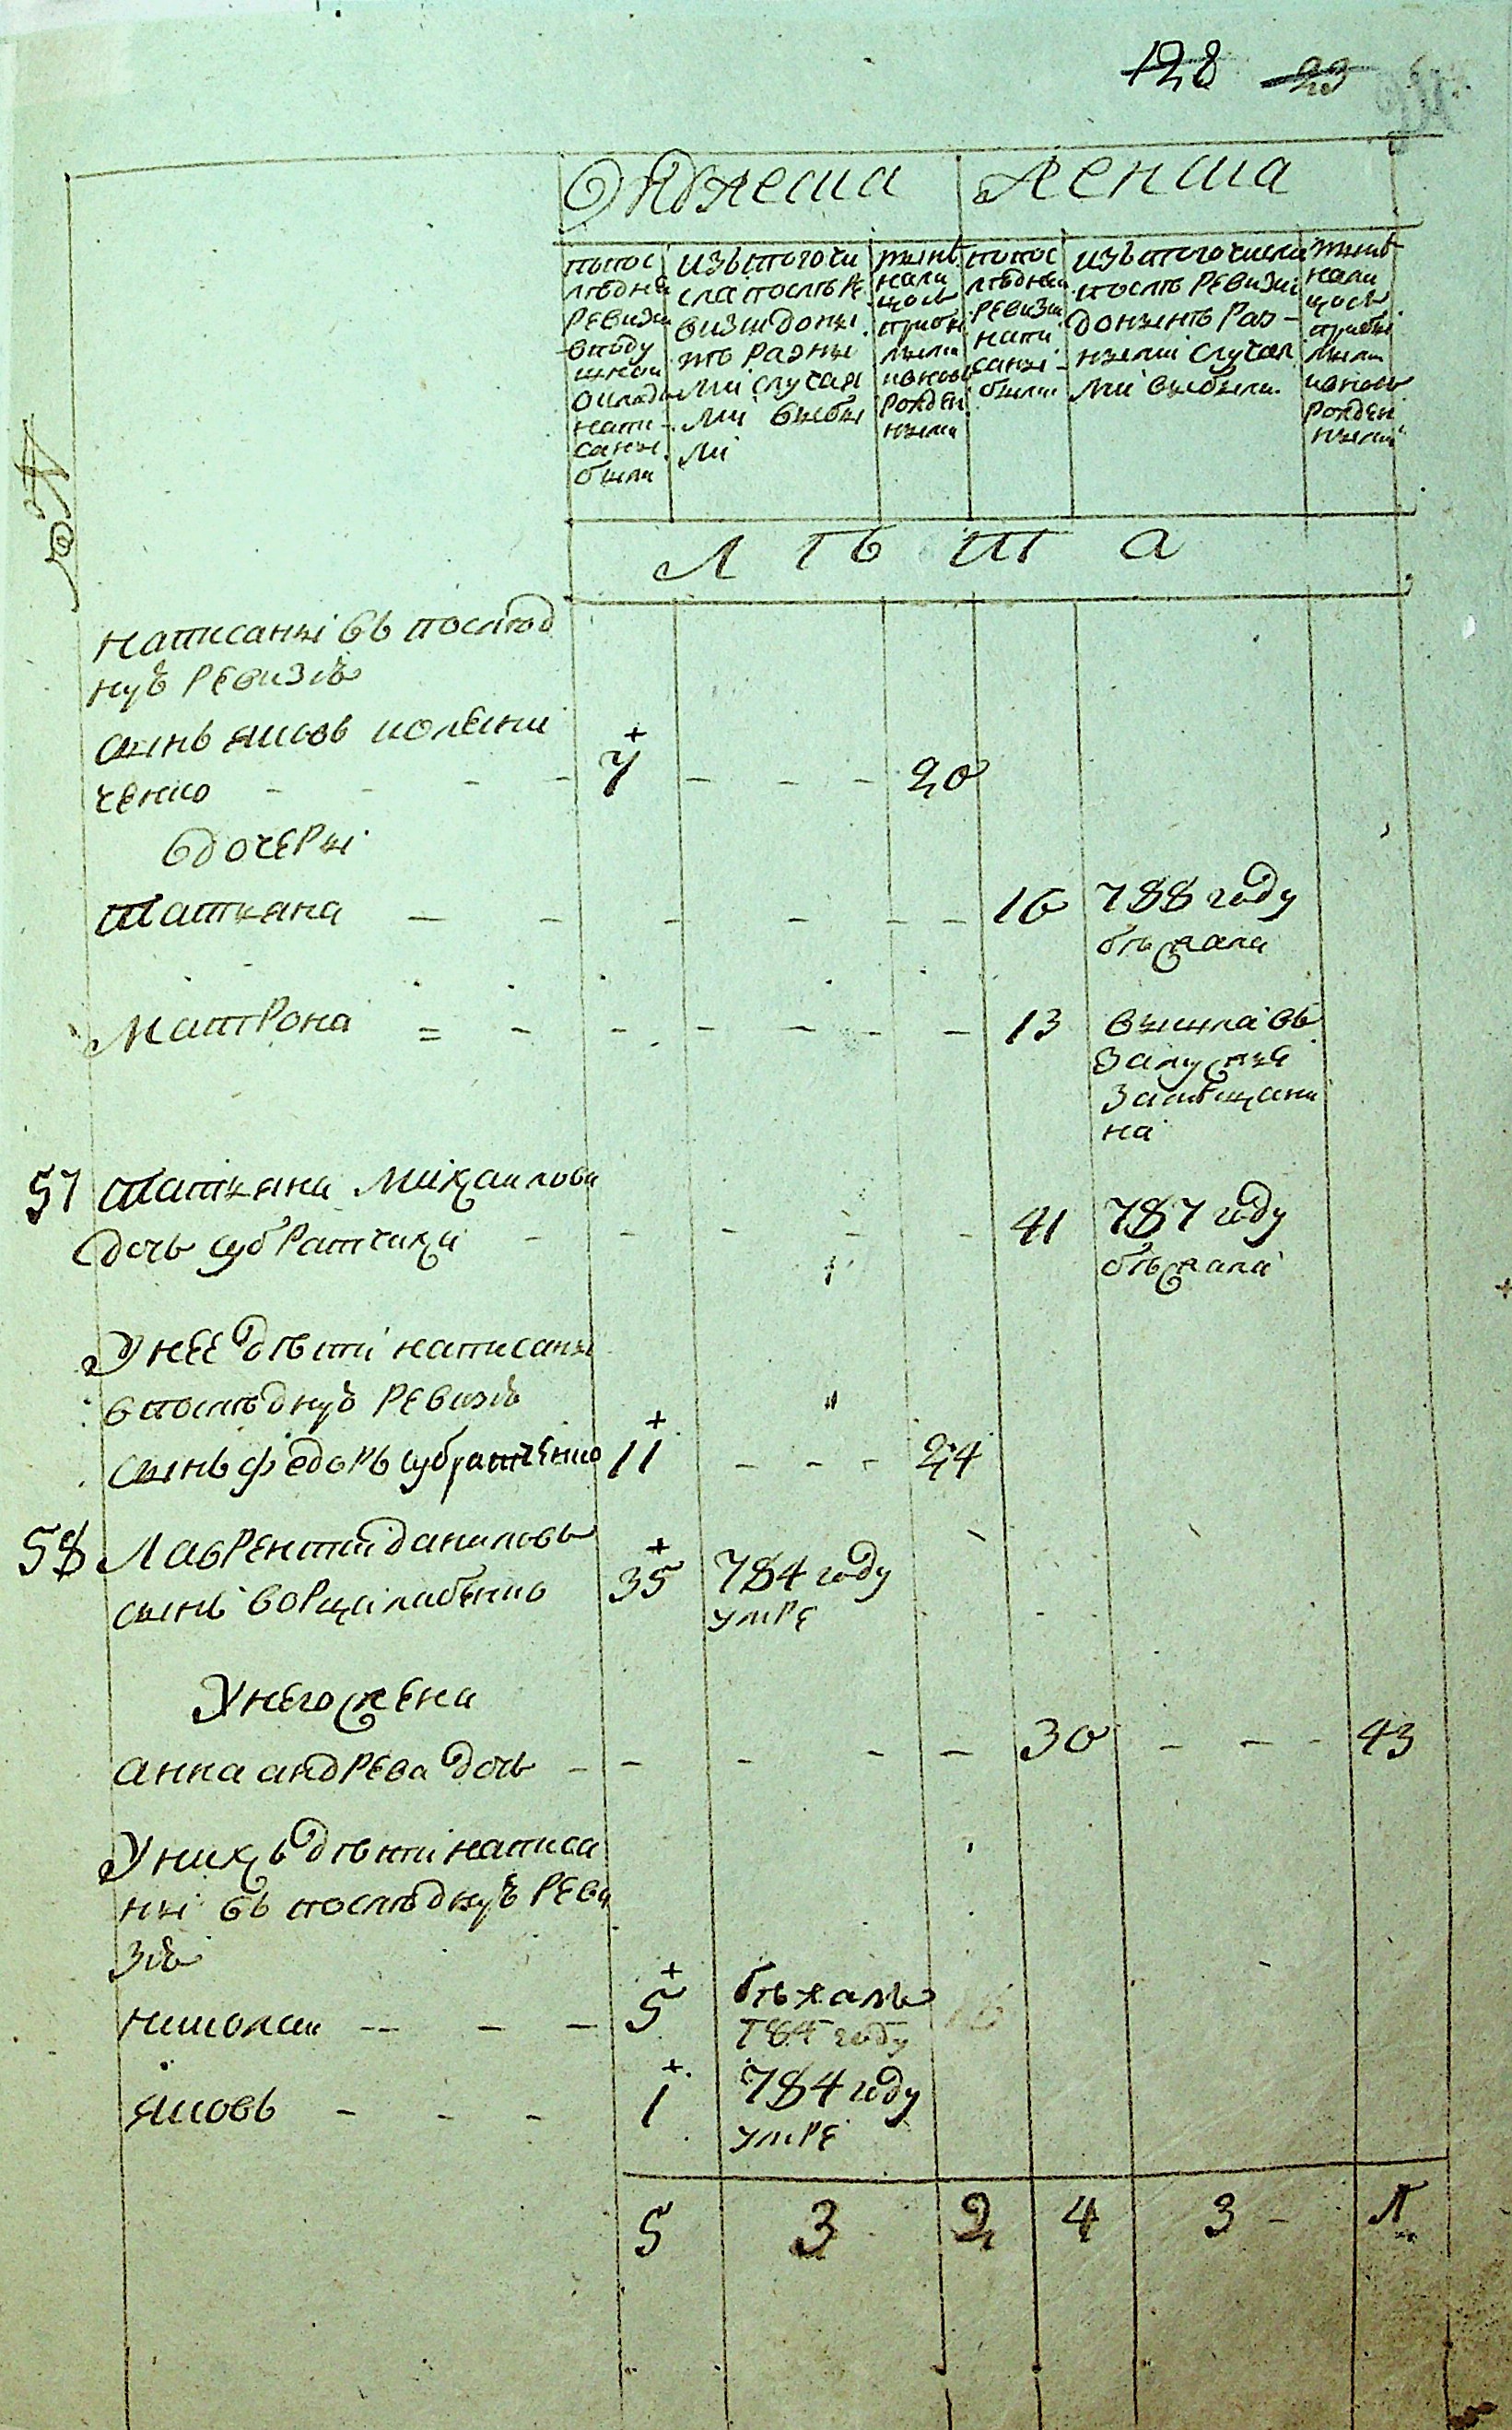 128 23
женска
попос
леднѣи
ревизи
вподу
шном
окладе
напи
саны
были
изътогочи
сла послѣ ре
визиидоны
нѣ разны
ми случая
ми выбы
ли
нынѣ
нали
цось
прибы
лыми
ивновь
рожден
ными
попос
ледней
ревизии
напи
саны
были
изътогочисла
послѣ ревизии
донынѣ раз
ными случая
ми выбыли
нынѣ
нали
цось
прибы
лыми
ивновь
рожден
ными
лѣта
написаны въ послѣд
ную ревизію
сынъ яковъ колесни
ченко 7 20
вдочеры
татьяна 16 788 году
бѣжала
матрона 13 вышла въ
замужье
замѣщани
на
57 татьяна михаилова
дочь субратчиха 41 787 году
бѣжала
унее дѣти написаны
впослѣдную ревизію
сынъ федоръ субратченко 11 24
58 лаврентий даниловъ
сынъ 35 784 году
умре
унего жена
анна андрева дочь 30 43
унихъ дѣти написа
ны въ послѣдную реви
зію
николаи 5 бѣжалъ
784 году
яковъ 1 784 году
умре
5 3 2 4 3 1